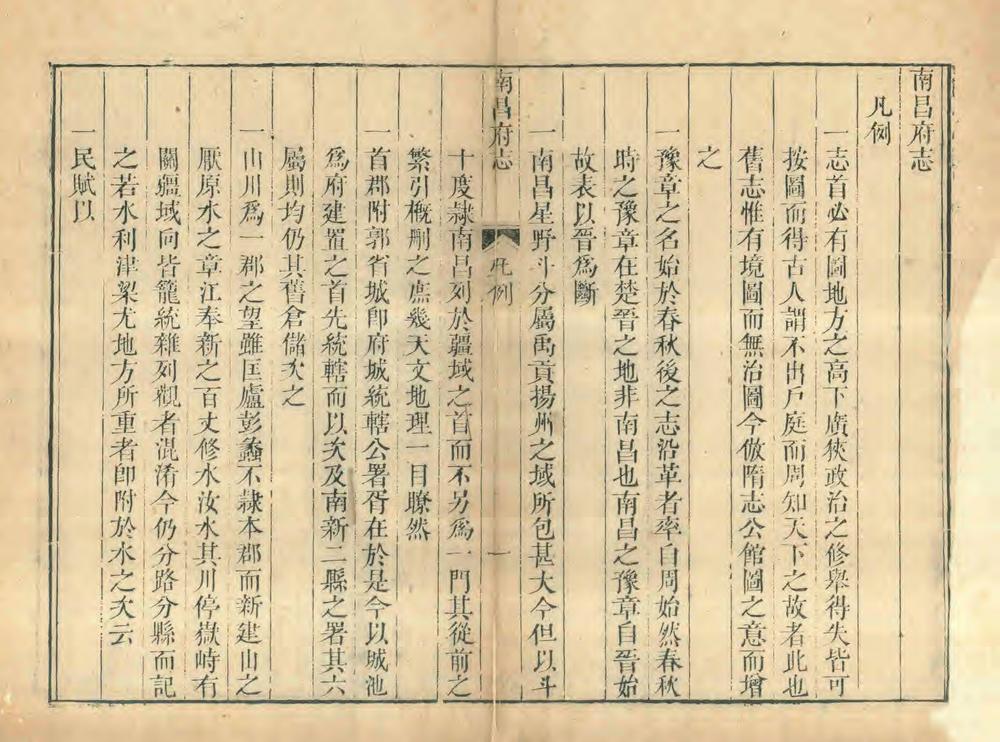 南昌府志
凡例
一志首必有圖地方之高下廣狹政治之修舉得失皆可
按圖而得古人謂不出戸庭而周知天下之故者此也
舊志惟有境圖而無治圖今倣隋志公館圖之意而增
之
一豫章之名始於春秋後之志沿革者率自周始然春秋
時之豫章在楚晉之地非南昌也南昌之豫章自晉始
故表以晉爲斷
一南昌星野斗分屬禹貢揚州之域所包甚大今但以斗
南昌府志
凡例
一
十度隷南昌列於疆域之首而不另爲一門其從前之
繁引槪刪之庶幾天文地理一目瞭然
一首郡附郭省城卽府城統轄公署胥在於是今以城池
爲府建置之首先統轄而以次及南新二縣之署其六
屬則均仍其舊倉儲次之
一山川爲一郡之望雖匡廬彭蠡不隷本郡而新建山之
厭原水之章江奉新之百丈修水汝水其川停嶽峙有
關疆域向皆籠統雜列觀者混淆今仍分路分縣而記
之若水利津梁尤地方所重者卽附於水之次云
一民賦以